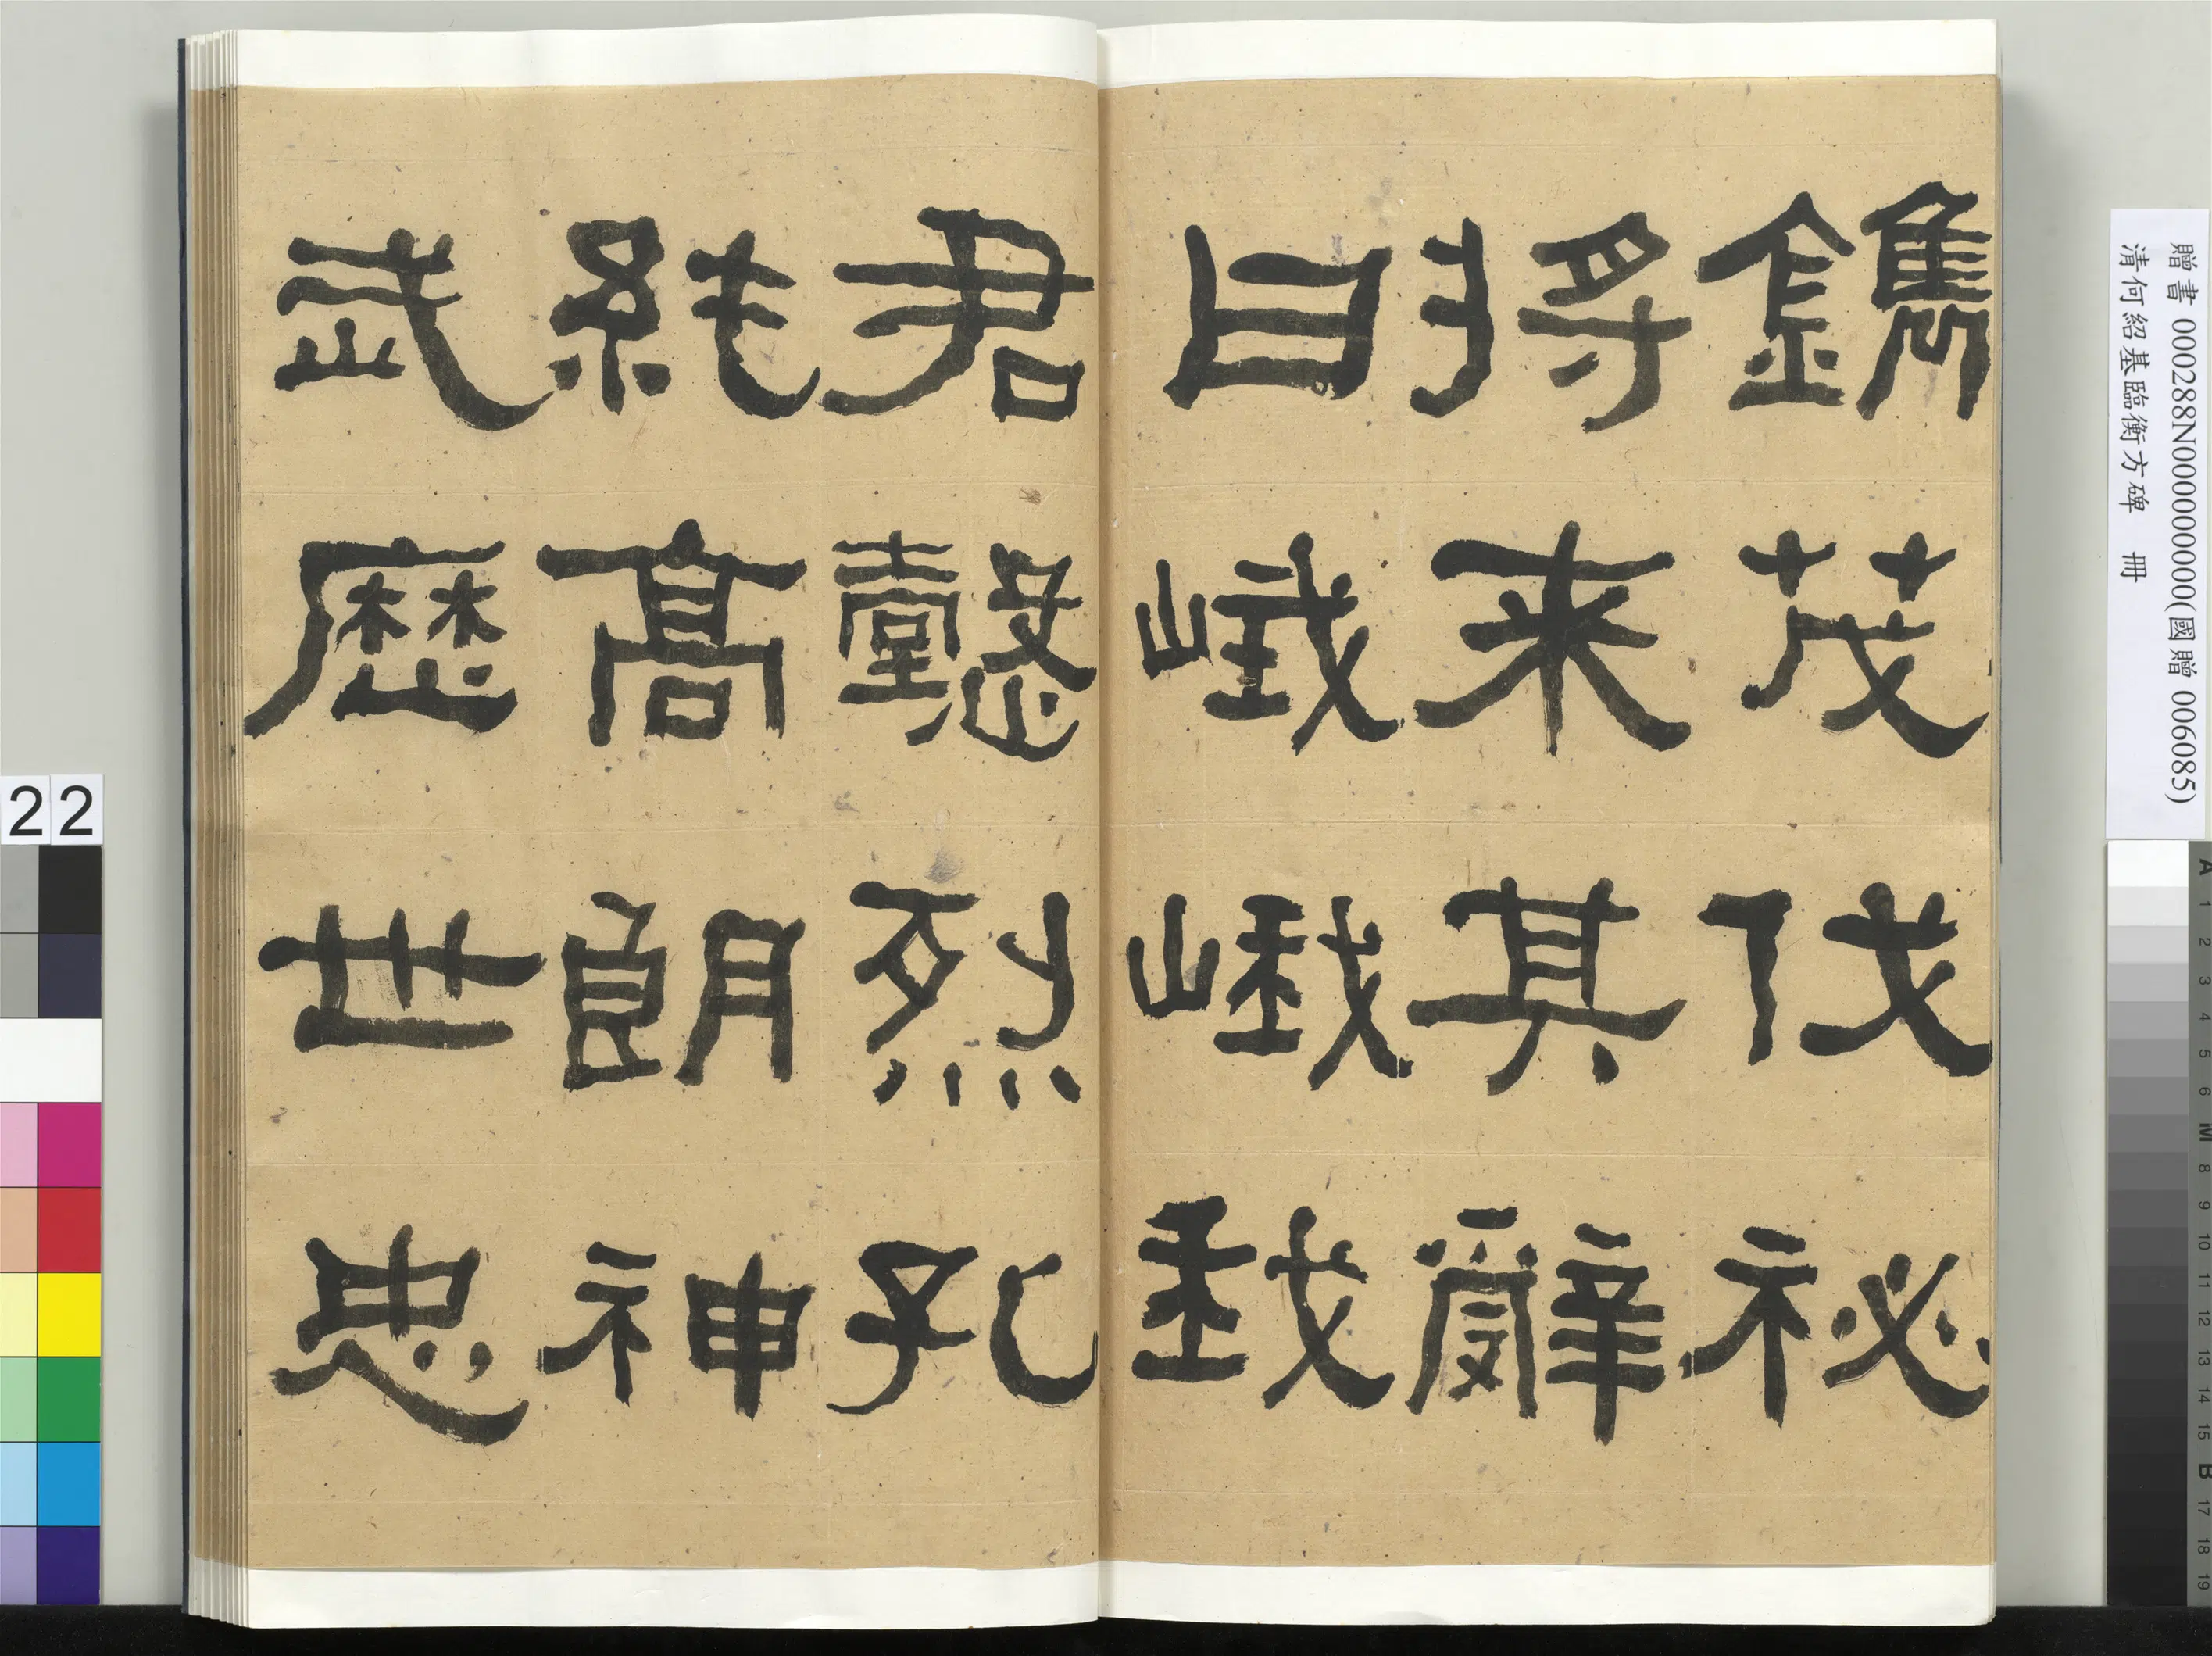 鐫茂伐祕
將来其辭
曰峨峨我
君懿烈孔
純髙朗神
武歴世忠
贈書 000288N000000000(國贈 006085)
清何紹基臨衡方碑 冊
22
A 1 2 3 4 5 6 M 8 9 10 11 12 13 14 15 B 17 18 19